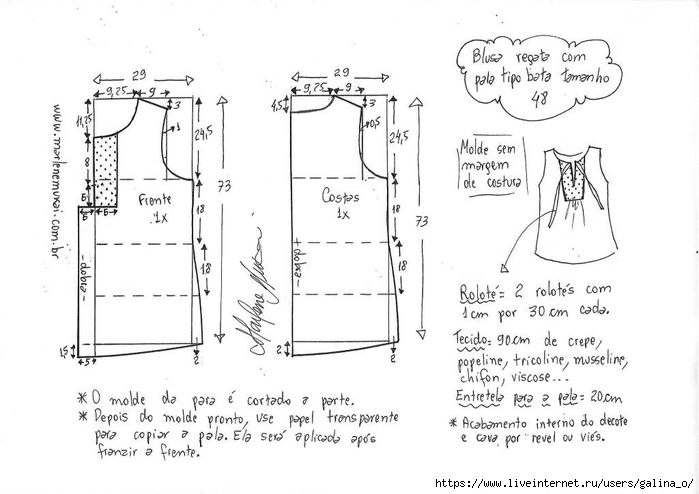 29
9,25
9
3
1
11,25
8
5
5
5
24,5
73
Frente
1x
18
18
-dobra-
1,5
4,5
2
www.marlenemukai.com.br
29
9,25
9
4,5
3
0,5
24,5
73
Costas
1x
18
18
-dobra-
2
2
Marlene Mukai
Blusa regata com
pala tipo bata tamanho
48
Molde sem
margem
de costura
Roloté = 2 rolotés com
1cm por 30cm cada.
Tecido: 90cm de crepe,
popeline, tricoline, musseline,
chifon, viscose...
Entretela para a pala = 20cm
* Acabamento interno do decote
e cava por revel ou viés.
* O molde da para é cortado a parte.
* Depois do molde pronto, use papel transparente
para copiar a pala. Ela será aplicada após
franzir a frente.
https://www.liveinternet.ru/users/galina_o/